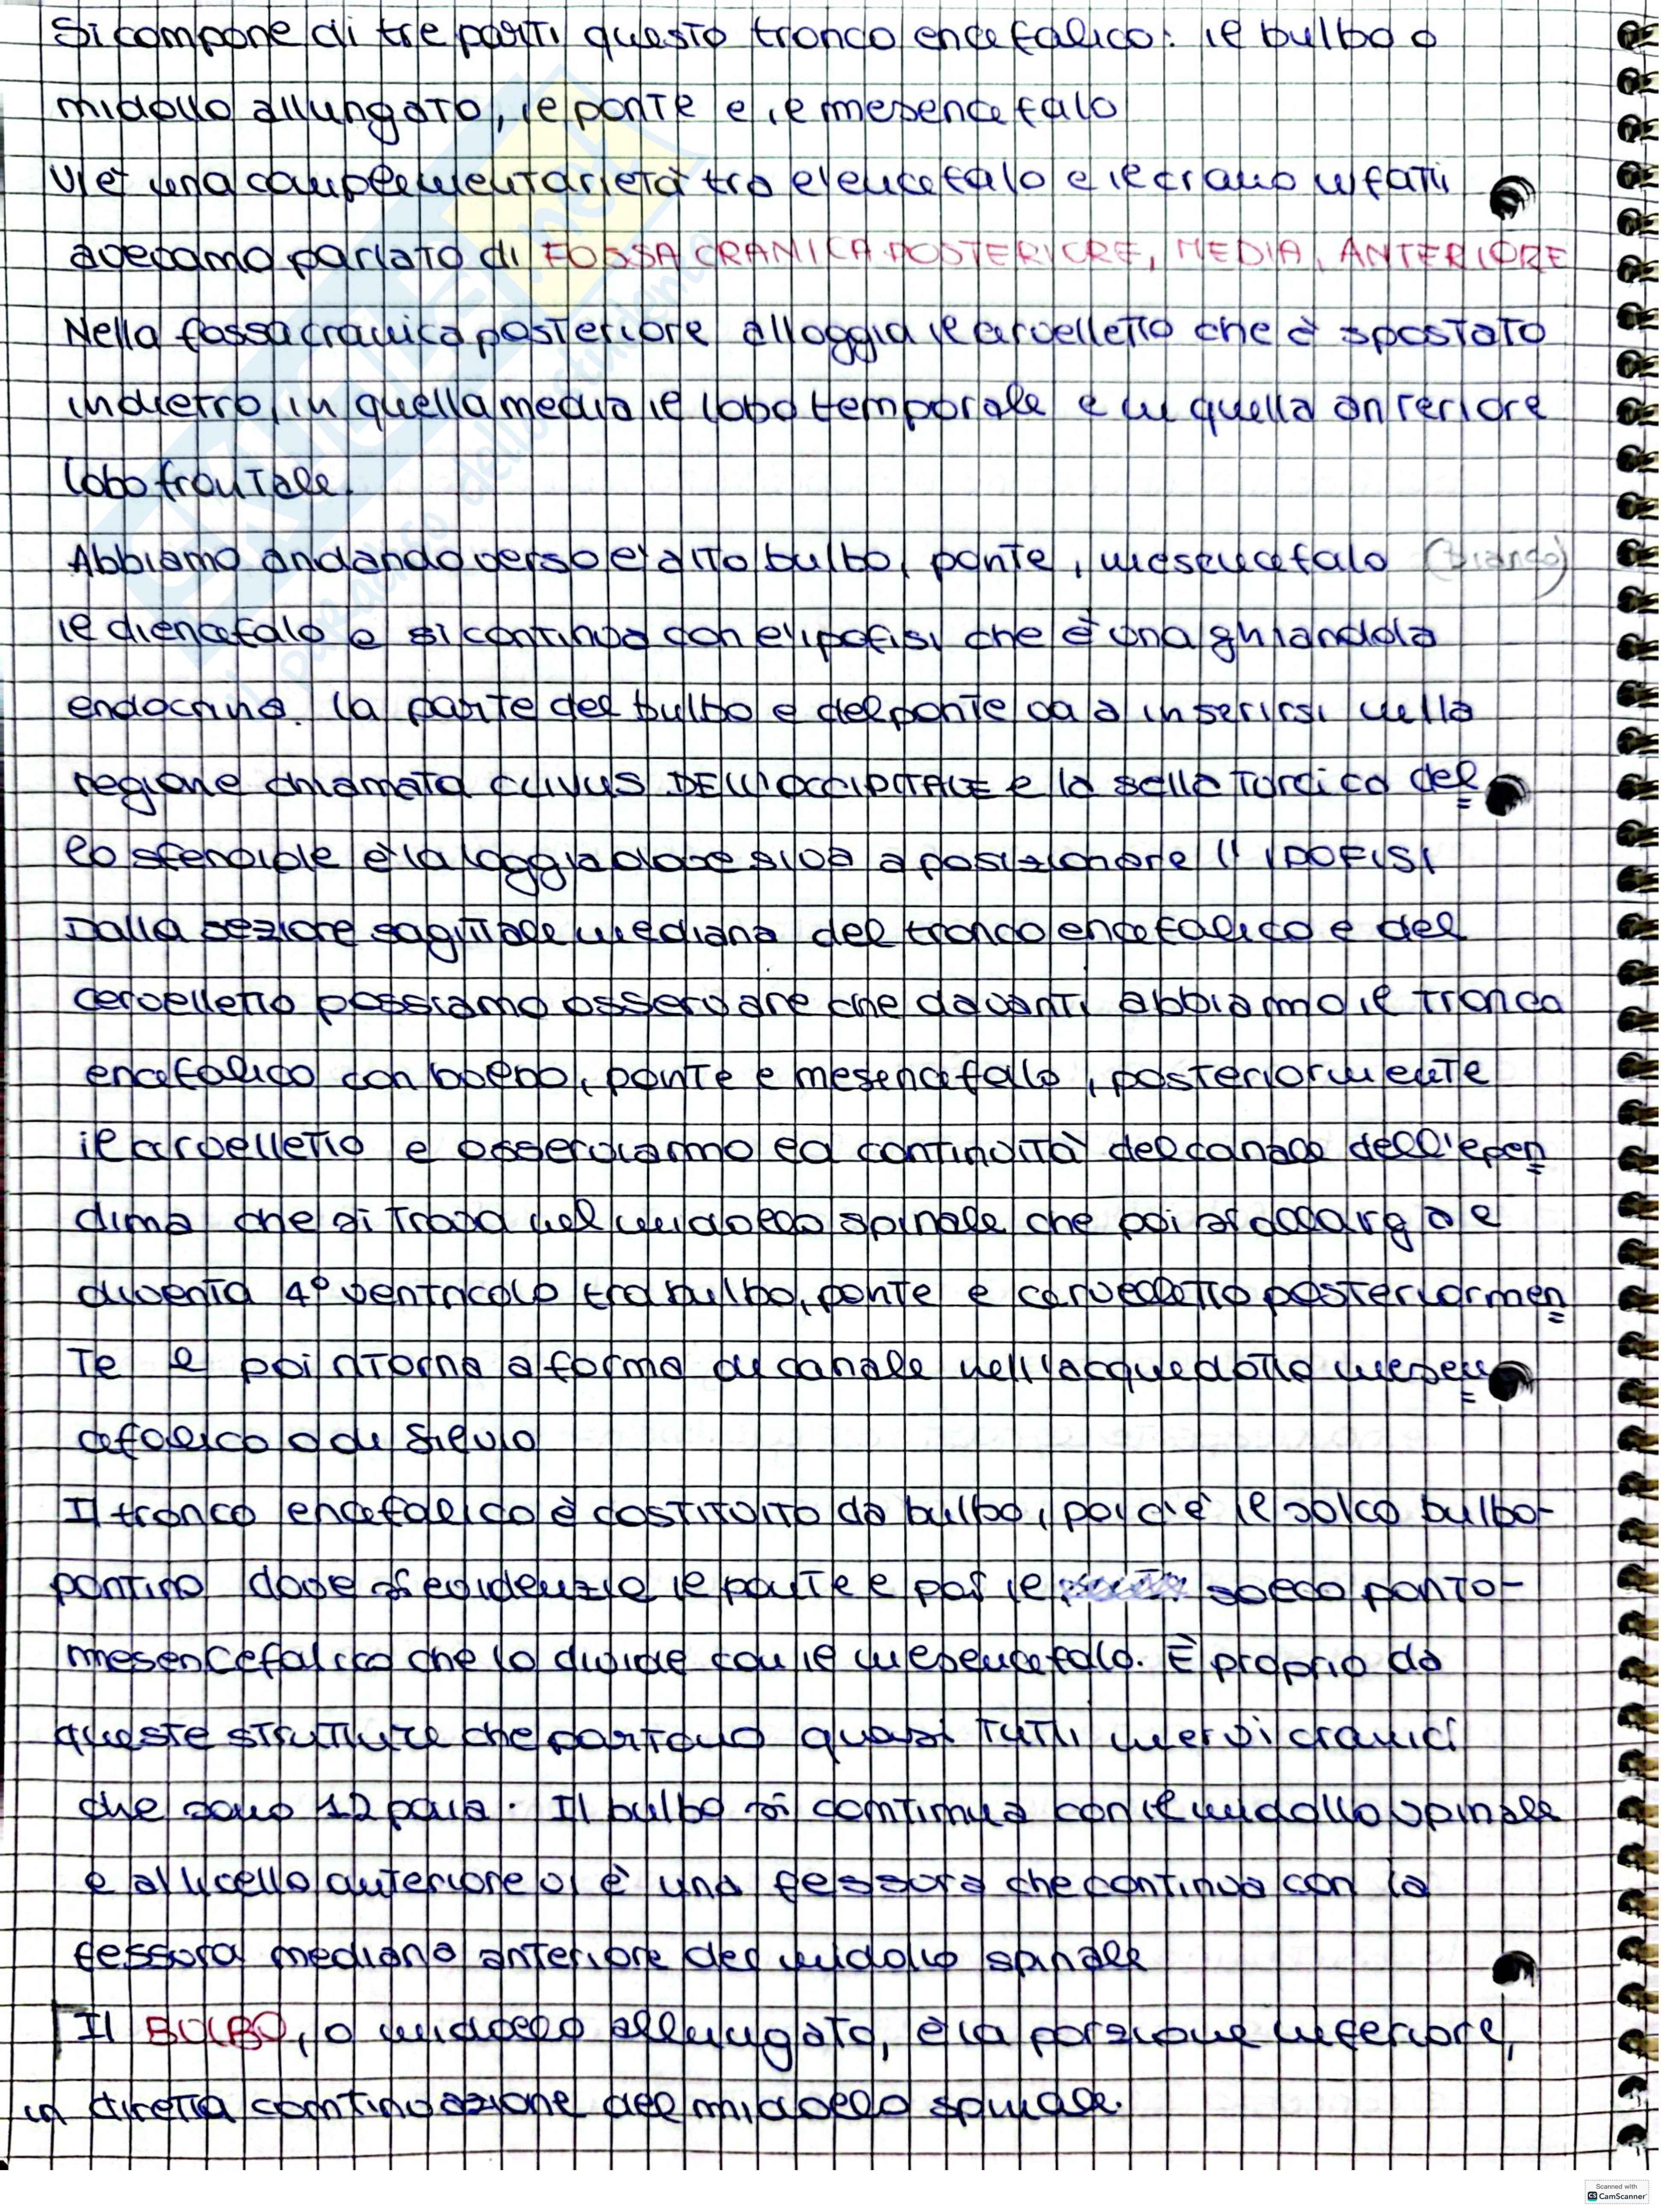 Si compone di tre parti questo tronco encefalico: il bulbo o
midollo allungato, il ponte e il mesencefalo
Vi è una complementarietà tra l'encefalo e il cranio infatti
avevamo parlato di FOSSA CRANICA POSTERIORE, MEDIA, ANTERIORE
Nella fossa cranica posteriore alloggia il cervelletto che è spostato
indietro, in quella media il lobo temporale e in quella anteriore
lobo frontale.
Abbiamo andando verso l'alto bulbo, ponte, mesencefalo (bianco)
il diencefalo e si continua con l'ipofisi che è una ghiandola
endocrina. la parte del bulbo e del ponte va a inserirsi nella
regione chiamata CLIVUS DELL'OCCIPITALE e la sella turcica del
lo sfenoide è la loggia dove si va a posizionare l'IPOFISI
Dalla sezione sagittale mediana del tronco encefalico e del
cervelletto possiamo osservare che davanti abbiamo il tronco
encefalico con bulbo, ponte e mesencefalo, posteriormente
il cervelletto e osserviamo la continuità del canale dell'epen
dima che si trova nel midollo spinale che poi si allarga e
diventa 4° ventricolo tra bulbo, ponte e cervelletto posteriormen
te e poi ritorna a forma di canale nell'acquedotto mesen
cefalico o di Silvio
Il tronco encefalico è costituito da bulbo, poi c'è il solco bulbo-
pontino dove si evidenzia il ponte e poi il solco ponto-
mesencefalico che lo divide con il mesencefalo. È proprio da
queste strutture che partono quasi tutti i nervi cranici
che sono 12 paia. Il bulbo si continua con il midollo spinale
e a livello anteriore vi è una fessura che continua con la
fessura mediana anteriore del midollo spinale
Il BULBO, o midollo allungato, è la porzione inferiore,
in diretta continuazione del midollo spinale.
SKUOLA.net
il paradiso dello studente
Scanned with
CS CamScanner